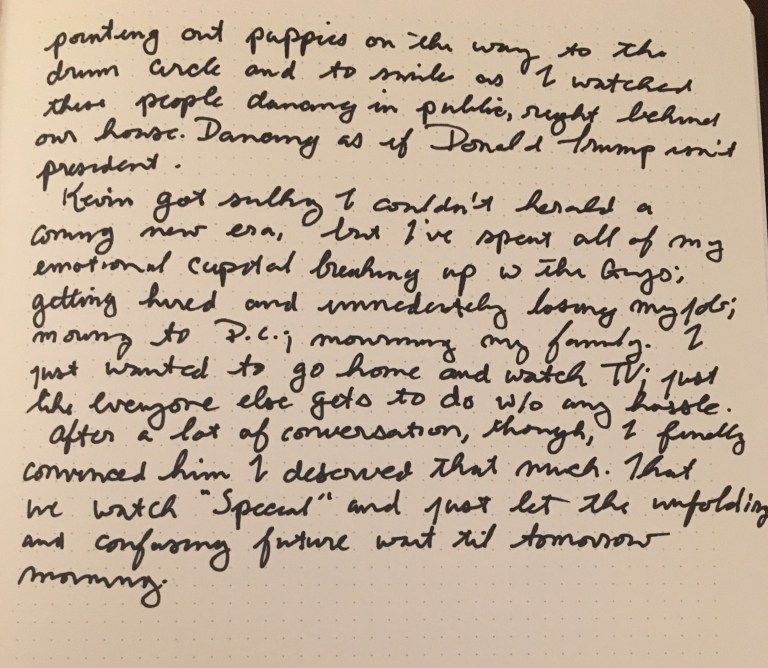 pointing out puppies on the way to the
drum circle and to smile as I watched
these people dancing in public, right behind
our house. Dancing as if Donald Trump isn't
president.
Kevin got sulky I couldn't herald a
coming new era, but I've spent all of my
emotional capital breaking up w the Guys;
getting hired and immediately losing my job;
moving to D.C.; mourning my family. I
just wanted to go home and watch TV; just
like everyone else gets to do w/o any hassle.
After a lot of conversation, though, I finally
convinced him I deserved that much. That
we watch "Special" and just let the unfolding
and confusing future wait til tomorrow
morning.